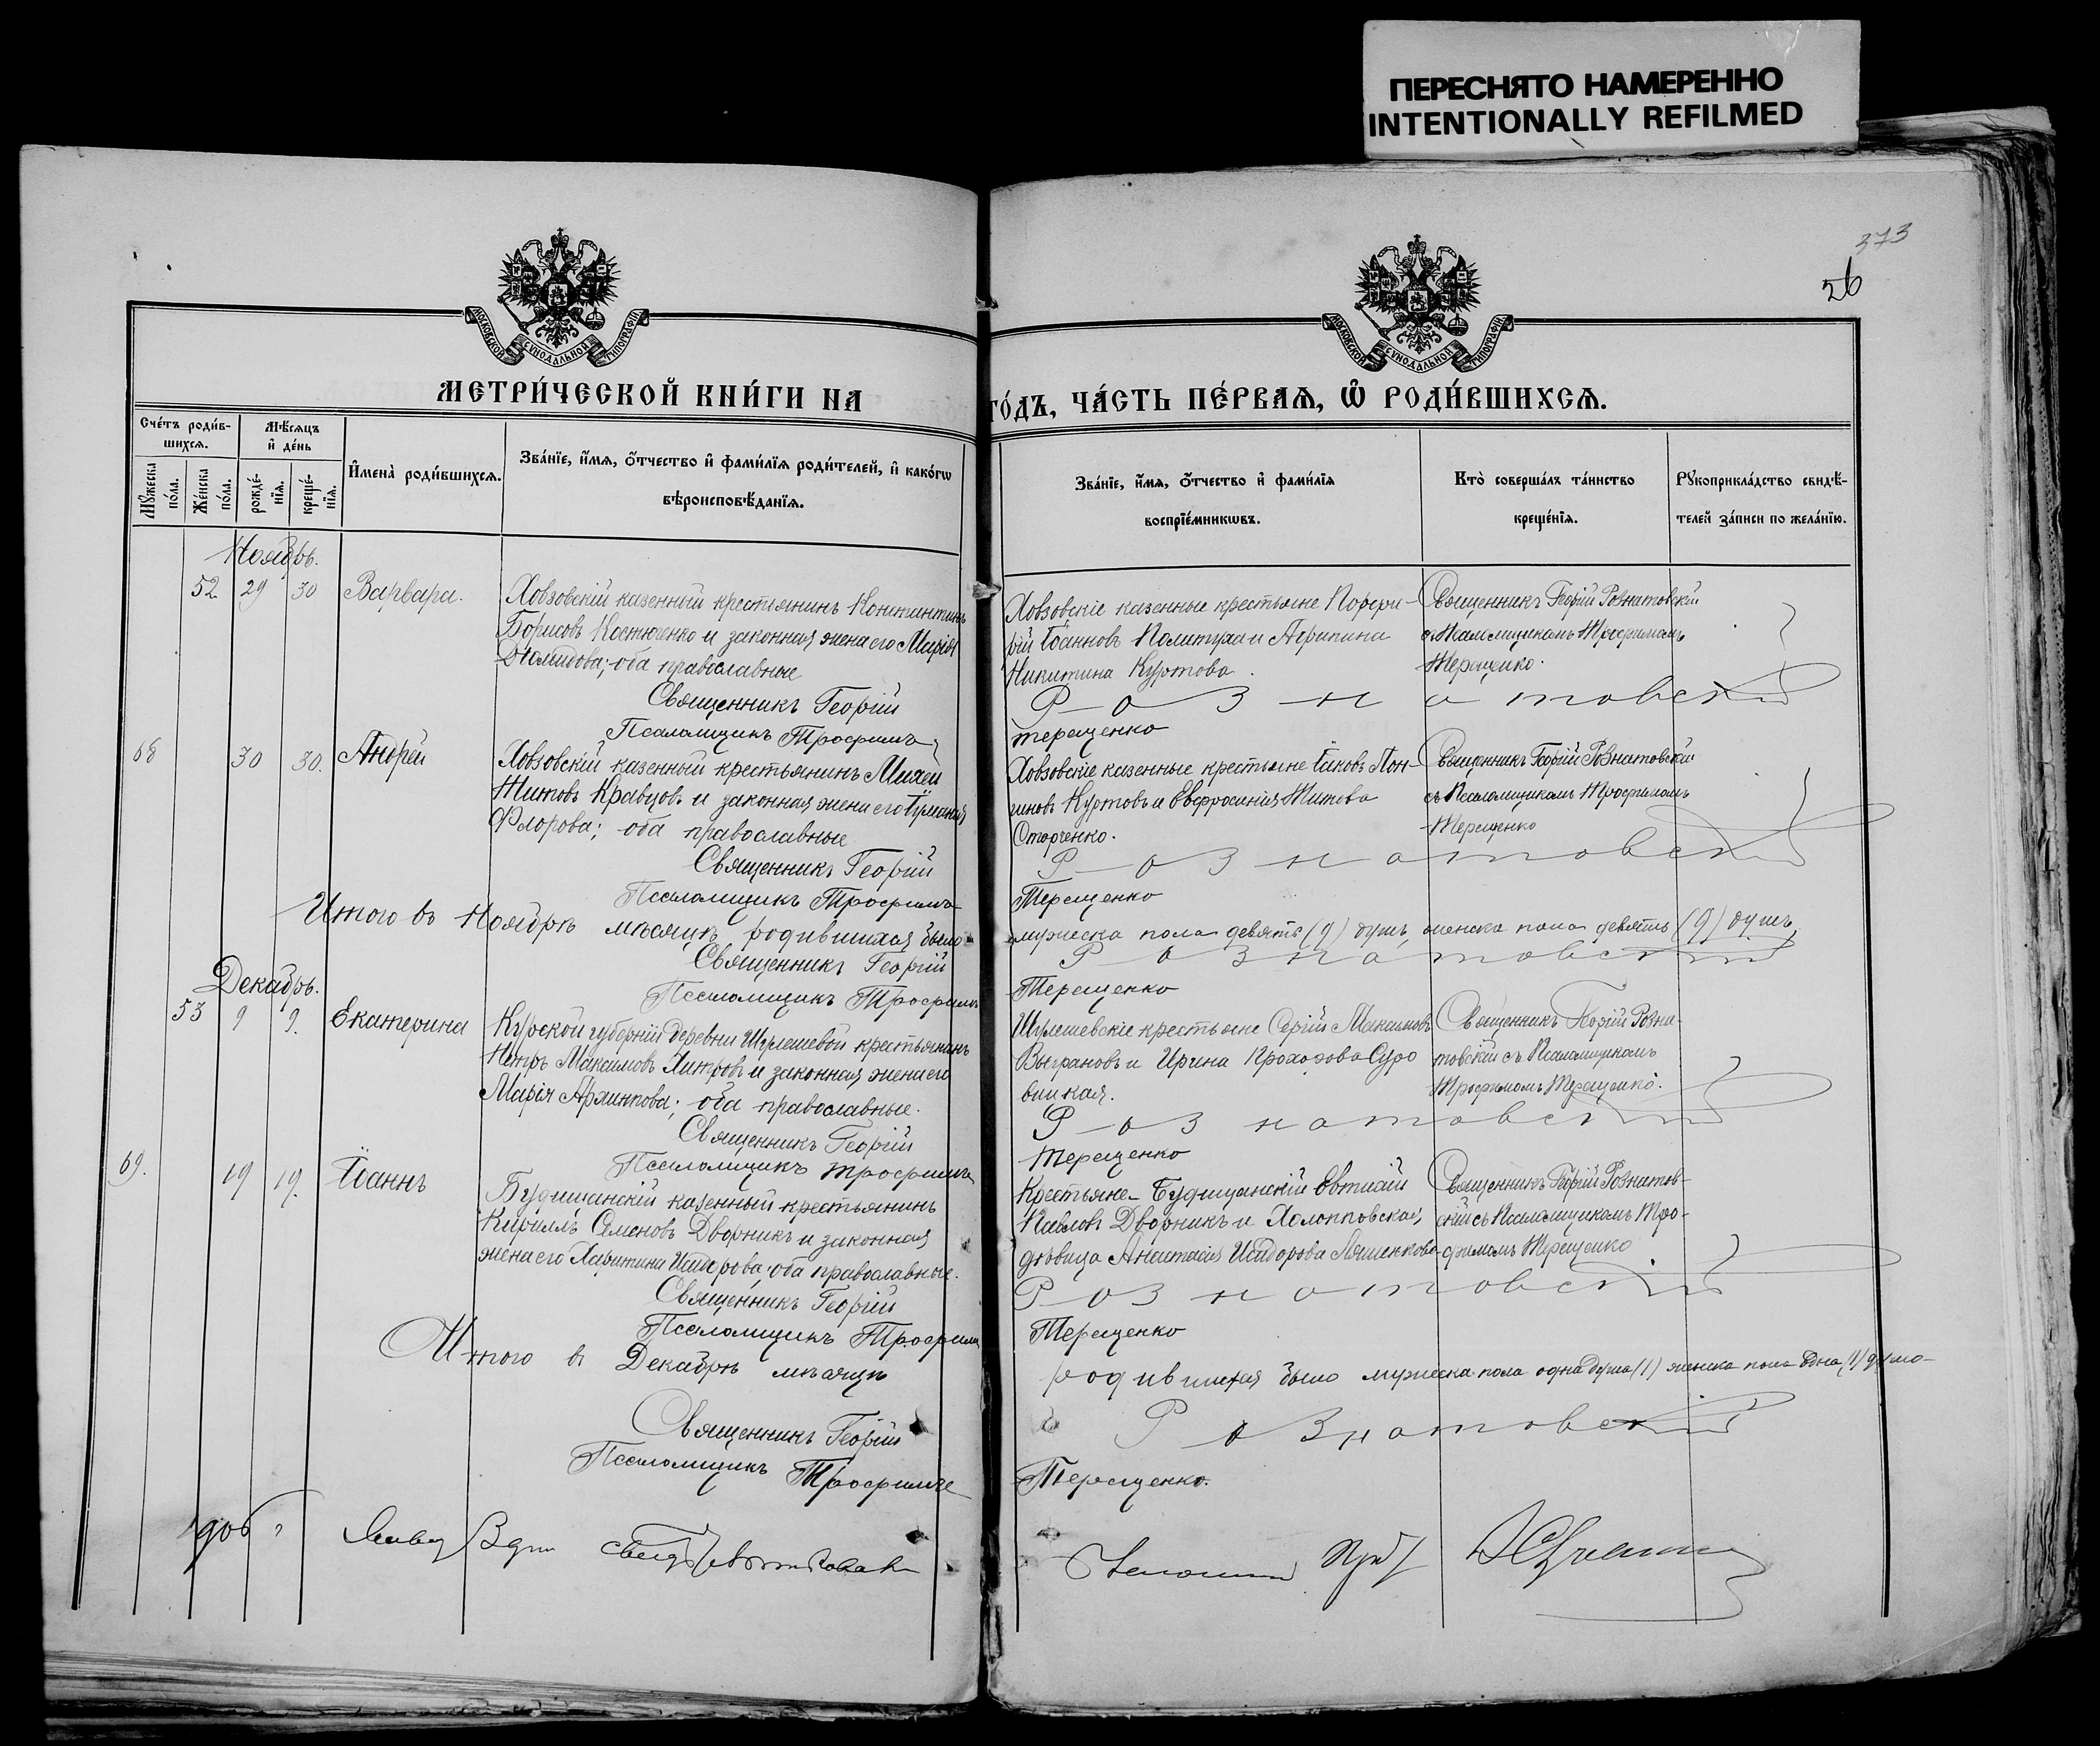 ПЕРЕСНЯТО НАМЕРЕННО
INTENTIONALLY REFILMED
373
26
МОСКОВСКОЙ СУНОДАЛЬНОЙ ТИПОГРАФІИ
МОСКОВСКОЙ СУНОДАЛЬНОЙ ТИПОГРАФІИ
МЕТРИ́ЧЕСКОЙ КНИ́ГИ НА
ГО́ДЪ, ЧА́СТЬ ПЕ́РВАЯ, Ѽ РОДИ́ВШИХСЯ.
Сче́тъ роди́в-
шихся.
Мѣ́сяцъ
и҆ де́нь
Мꙋ́жеска
по́ла.
Же́нска
по́ла.
рожде́-
нїя.
креще́-
нїя.
И҆мена̀ роди́вшихся.
Зва́нїе, и҆́мя, ѻ҆́тчество и҆ фами́лїя роди́телей, и҆ како́гѡ
вѣроисповѣ́данїя.
Зва́нїе, и҆́мя, ѻ҆́тчество и҆ фами́лїя
воспрїе́мникѡвъ.
Кто̀ соверша́лъ та́инство
креще́нїя.
Рꙋкоприкла́дство свидѣ́-
телей за́писи по жела́нїю.
Ноябрь.
52 29 30 Варвара.
Ховзовскій казенный крестьянинъ Константинъ
Борисовъ Костюченко и законная жена его Марія
Діомидова; оба православные
Священникъ Георгій
Псаломщикъ Трофимъ
Ховзовскіе казенные крестьяне Порфи-
рій Іоанновъ и Агрипина
Никитина Куртова.
Священникъ Георгій Рознатовскій
съ Псаломщикомъ Трофимомъ
Терещенко.
Розматовскій
Терещенко
68 30 30. Андрей
Ховзовскій казенный крестьянинъ Михей
Титовъ Кравцовъ и законная жена его
Флорова; оба православные
Священникъ Георгій
Псаломщикъ Трофимъ
Ховзовскіе казенные крестьяне Іаковъ Лон-
гиновъ Куртовъ и Евфросинія Титова
Сторченко.
Священникъ Георгій Рознатовскій
съ Псаломщикомъ Трофимомъ
Терещенко
Рознатовскій
Терещенко
Итого въ Ноябрѣ мѣсяцѣ родившихся было
мужеска пола девять (9) душъ, женска пола девять (9) душъ,
Священникъ Георгій
Рознатовскій
Псаломщикъ Трофимъ
Терещенко
Декабрь.
53 9 9. Екатерина
Курской губерніи деревни Шулешевой крестьянинъ
Петръ Максимовъ Хитровъ и законная жена его
Марія Архипова; оба православные.
Священникъ Георгій
Псаломщикъ Трофимъ
Шулешевскіе крестьяне Сергій Максимовъ
Выграновъ и Ирина Прохорова Суро
вицкая.
Священникъ Георгій Розна-
товскій съ Псаломщикомъ
Трофимомъ Терещенко.
Рознатовскій
Терещенко
69. 19 19. Іоаннъ
Будищанскій казенный крестьянинъ
Кириллъ Семеновъ Дворникъ и законная
жена его Харитина Исидорова, оба православные.
Священникъ Георгій
Псаломщикъ Трофимъ
Крестьяне Будищанскій Евтихій
Павловъ Дворникъ и Холопковская,
дѣвица Анастасія Исидорова Ляшенкова
Священникъ Георгій Рознатов-
скій съ Псаломщикомъ Тро-
фимомъ Терещенко
Рознатовскій
Терещенко
Итого въ Декабрѣ мѣсяцѣ
родившихся было мужеска пола одна душа (1) женска пола одна (1) душа
Священникъ Георгій
Рознатовскій
Псаломщикъ Трофимъ
Терещенко.
1906